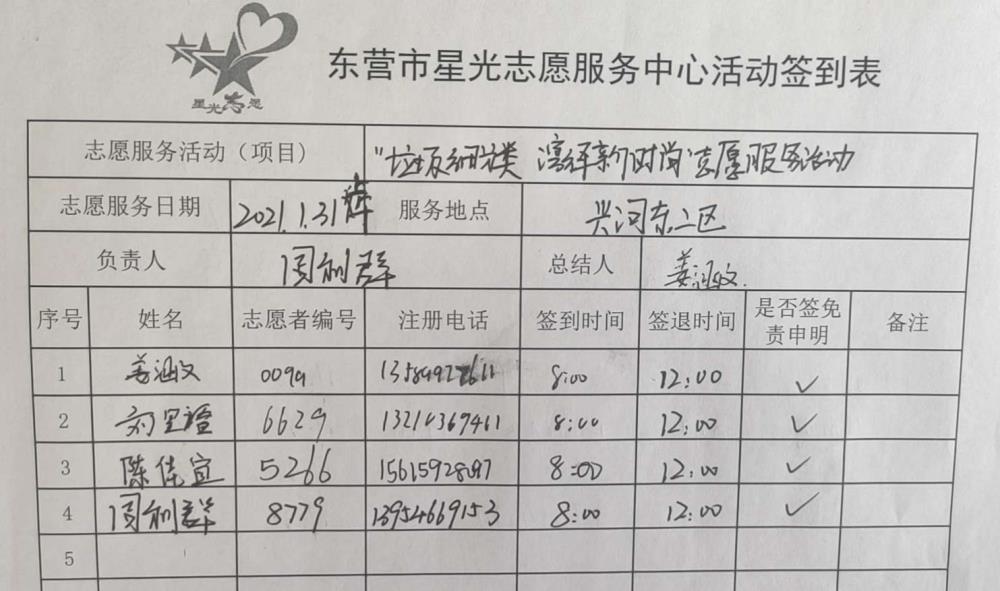 星光志愿
东营市星光志愿服务中心活动签到表
志愿服务活动（项目） "垃圾细分类 演绎新时尚"志愿服务活动
志愿服务日期 2021.1.31 服务地点 兴河东二区
负责人 周利群 总结人 姜涵文
序号 姓名 志愿者编号 注册电话 签到时间 签退时间 是否签免责申明 备注
1 姜涵文 009a 8:00 12:00 ✓
2 6629 13210367461 8:00 12:00 ✓
3 陈佳宜 5266 8:00 12:00 ✓
4 周利群 8779 13954669153 8:00 12:00 ✓
5